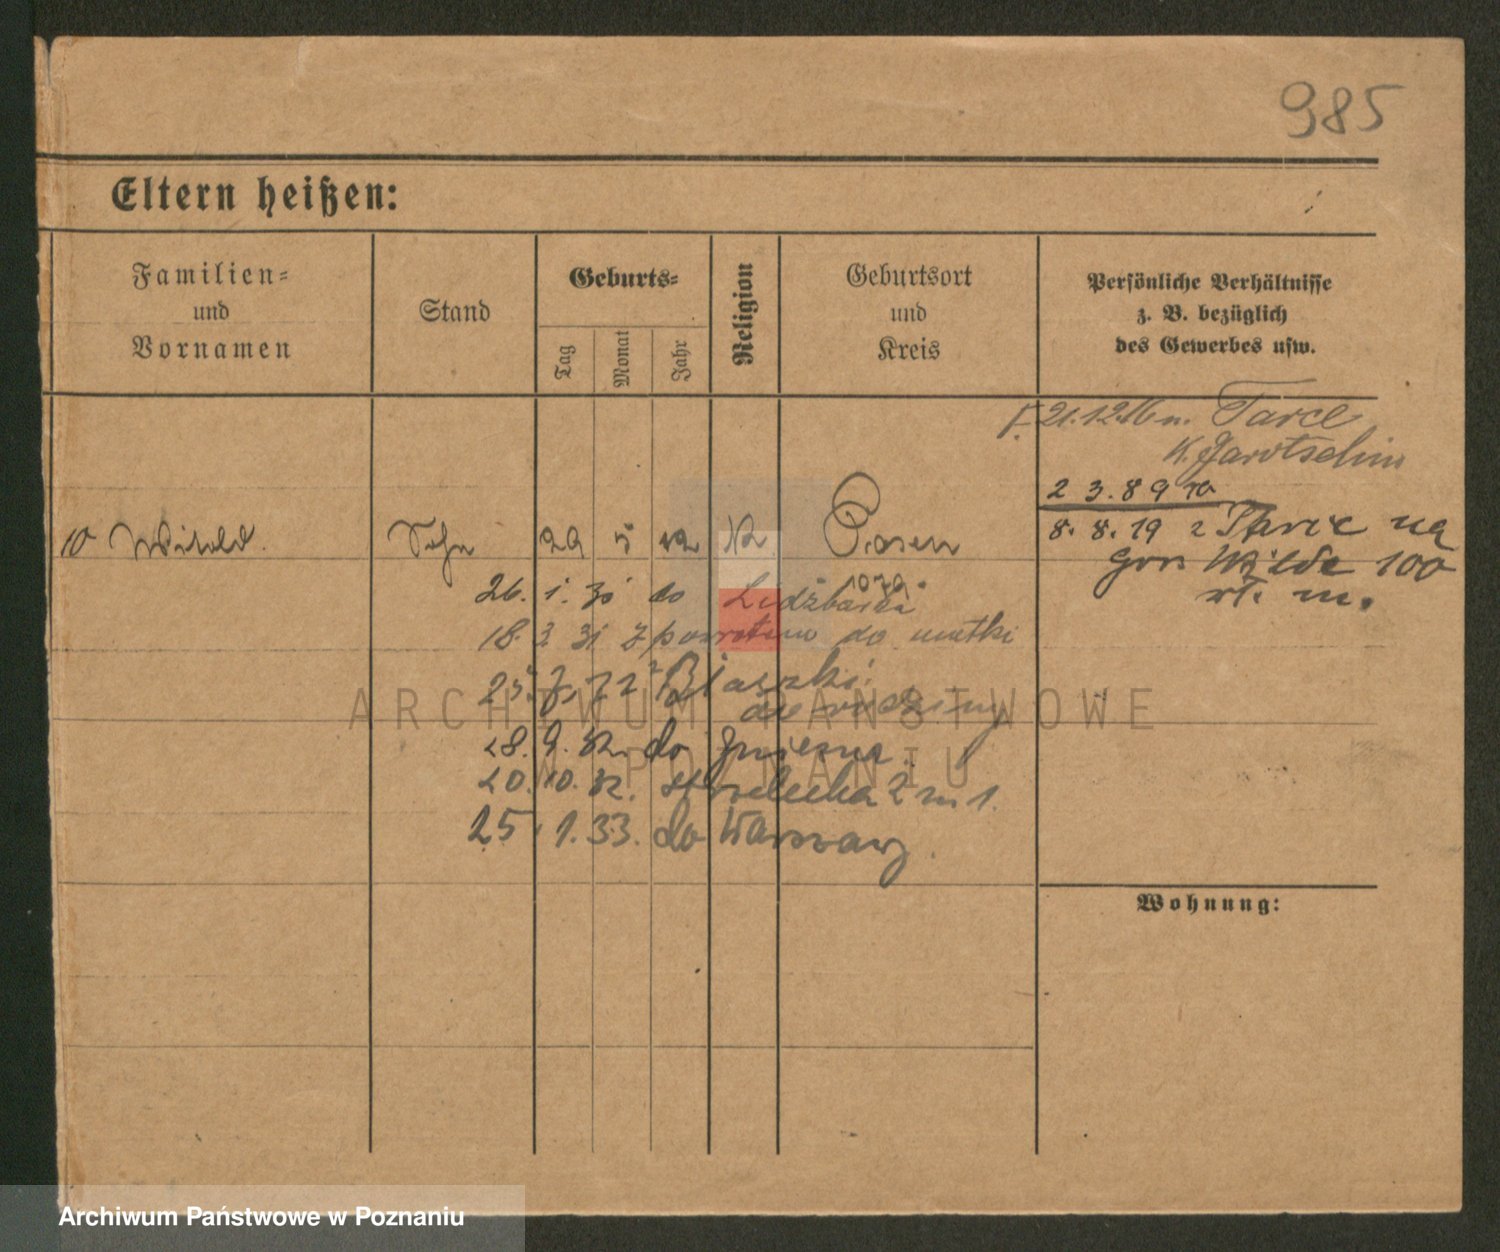 985
Eltern heißen:
Familien=
und
Vornamen
Stand
Geburts=
Tag
Monat
Jahr
Religion
Geburtsort
und
Kreis
Persönliche Verhältnisse
z. B. bezüglich
des Gewerbes usw.
21.12.16 n. Tarce
K. Jarotschin
2 3. 8 9
10 Witold. Sohn 29 5 12 K Posen
8. 8. 19 z Tarce na
Gór. Wilde 100
m.
26. 1. 31 do Lidzbarka
18. 2 31 z powrotem do matki
25. 7. 32 Blaszki
do rodziny
28. 9. 32. do Gniezna.
20. 10. 32. Strzelecka 2 m 1.
25. 1. 33. do Warszawy.
Wohnung:
ARCHIWUM PAŃSTWOWE
W POZNANIU
Archiwum Państwowe w Poznaniu